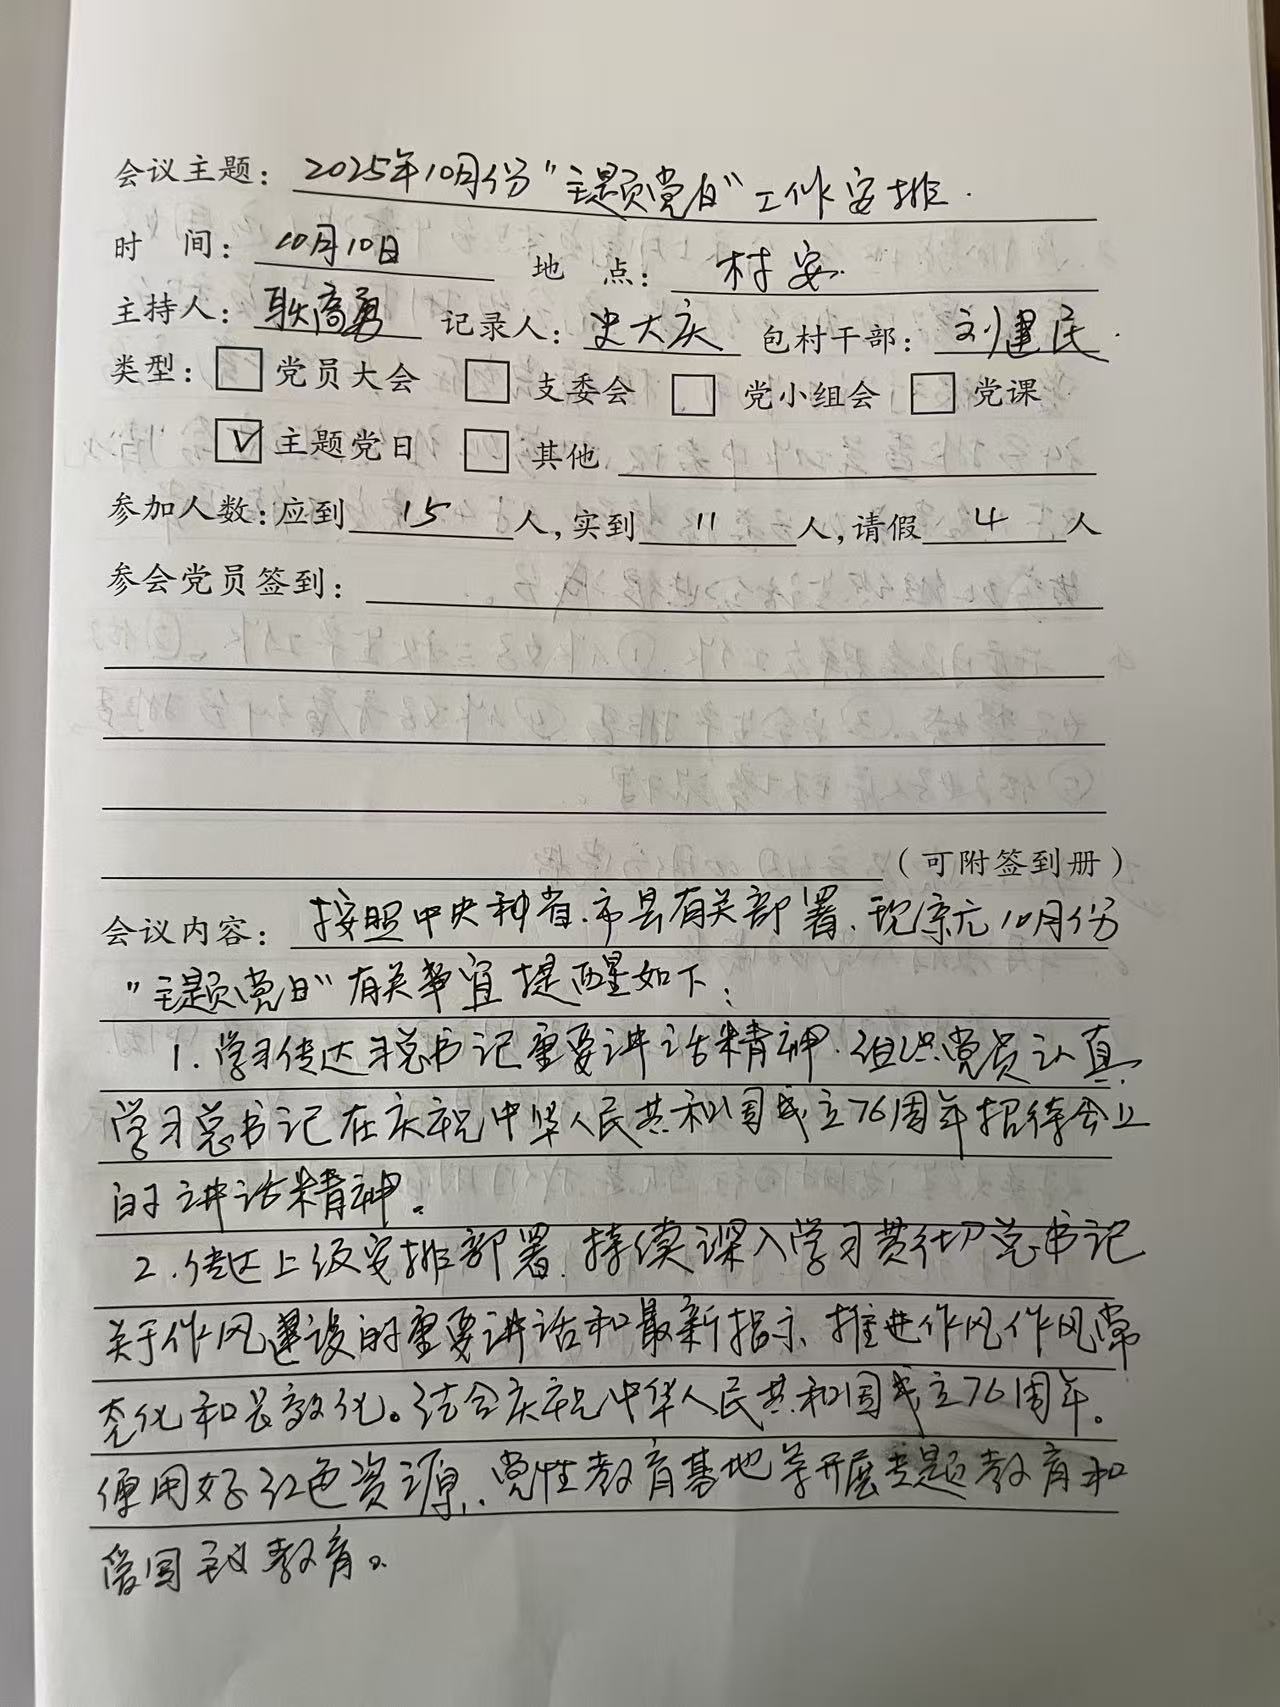 会议主题：2025年10月份“主题党日”工作安排.
时 间：10月10日 地 点：村室.
主持人：耿高勇 记录人：史大庆 包村干部：刘建民.
类型：□党员大会 □支委会 □党小组会 □党课
☑主题党日 □其他
参加人数：应到15人，实到11人，请假4人
参会党员签到：
（可附签到册）
会议内容：按照中央和省、市县有关部署，现就10月份
“主题党日”有关事宜提醒如下：
1.学习传达习总书记重要讲话精神.组织党员认真
学习总书记在庆祝中华人民共和国成立76周年招待会上
的讲话精神。
2.传达上级安排部署.持续深入学习贯彻总书记
关于作风建设的重要讲话和最新指示、推进作风作风常
态化和长效化。结合庆祝中华人民共和国成立76周年。
使用好红色资源、党性教育基地等开展专题教育和
爱国主义教育。